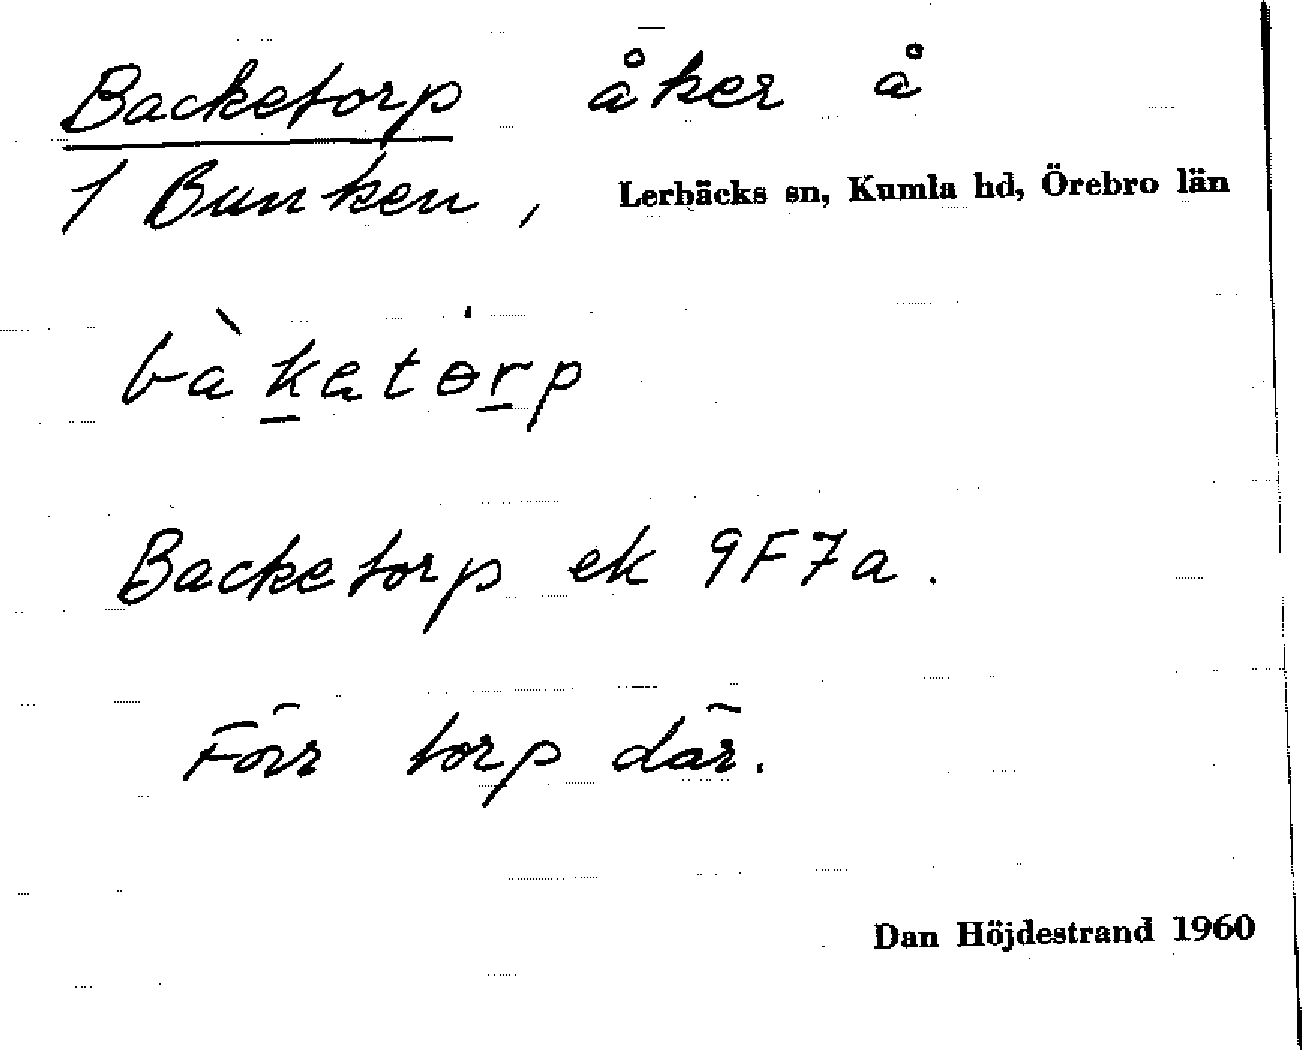 Backetorp åker å
1 Bunken, Lerbäcks sn, Kumla hd, Örebro län
bàkatɵrp
Backetorp ek 9F7a.
Förr torp där.
Dan Höjdestrand 1960